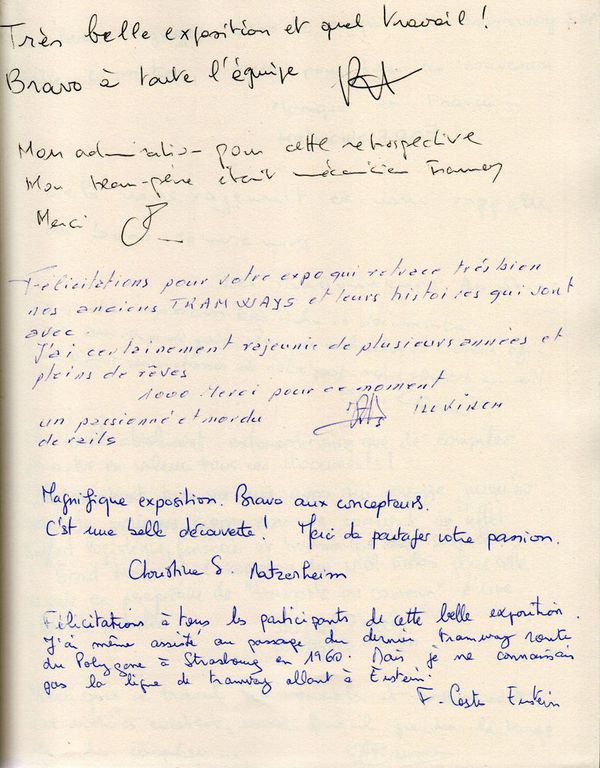 Très belle exposition et quel travail !
Bravo à toute l'équipe
Mon admiration pour cette retrospective
Mon beau-père était mécanicien Tramway
Merci
Félicitations pour votre expo qui retrace très bien
nos anciens TRAMWAYS et leurs histoires qui vont
avec
J'ai certainement rajeunie de plusieurs années et
pleins de rêves
1000 Merci pour ce moment
un passionné et mordu
de rails
ILLKIRCH
Magnifique exposition. Bravo aux concepteurs.
C'est une belle découverte ! Merci de partager votre passion.
Christine S. Matzenheim
Félicitations à tous les participants de cette belle exposition.
J'ai même assisté au passage du dernier tramway route
du Polygone à Strasbourg en 1960. Mais je ne connaissais
pas la ligne de tramway allant à Erstein.
F. Caste Erstein